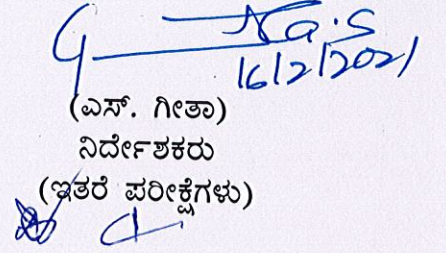 16/2/2021
(ಎಸ್. ಗೀತಾ)
ನಿರ್ದೇಶಕರು
(ಇತರೆ ಪರೀಕ್ಷೆಗಳು)